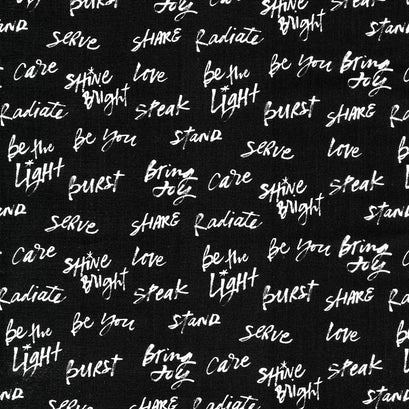 BURST Joy SHINE Bright
STAND SERVE SHARE Radiate STAND
Care SHINE Bright Love Be the LIGHT Be You Bring Joy
Radiate SPEAK BURST SHARE
Be the LIGHT Be You STAND SERVE Love
BURST Bring Joy Care SHINE Bright SPEAK
SERVE SHARE Radiate STAND
Care SHINE Bright Love Be the LIGHT Be You Bring Joy
Radiate SPEAK BURST SHARE
Be the LIGHT Be You STAND SERVE Love
BURST Bring Joy Care SHINE Bright SPEAK
SERVE SHARE Radiate STAND